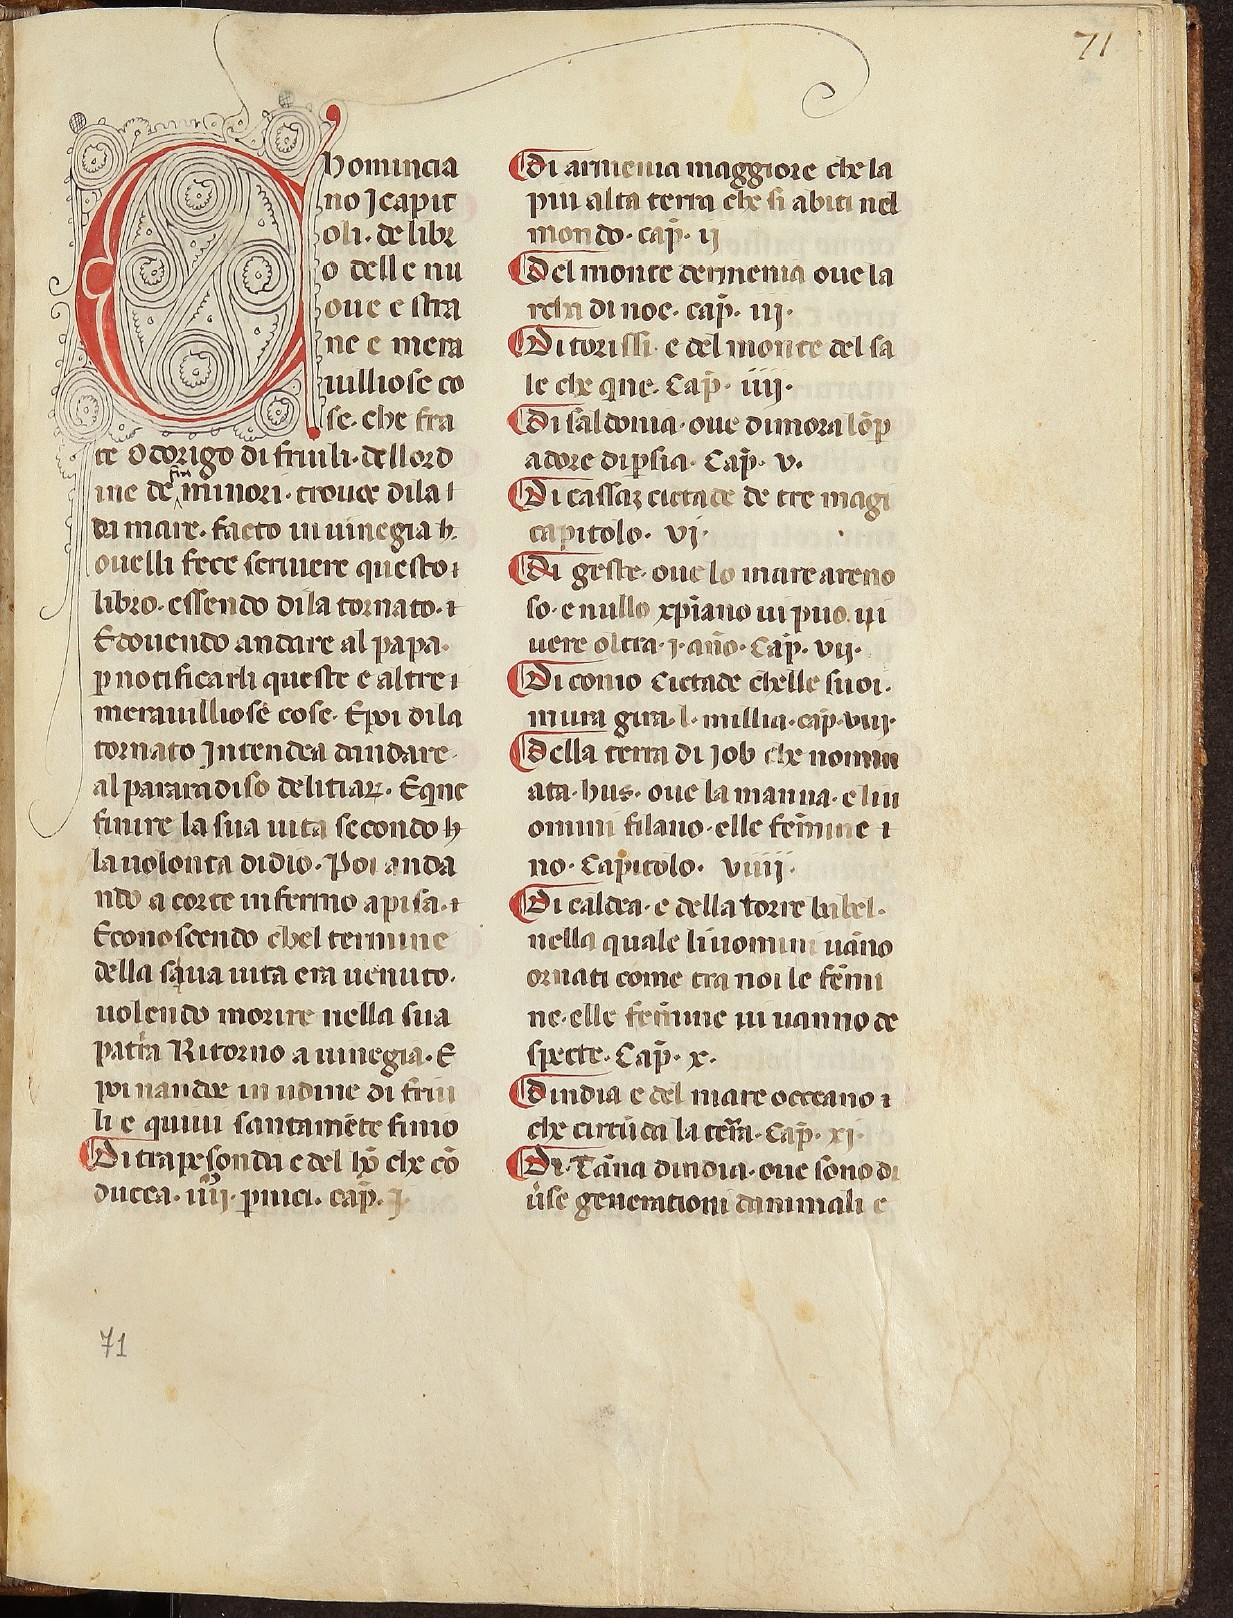 71
Chomincia
no J capit
oli. de libr
o delle nu
oue e stra
ne e mera
uilliose co
se. che fra
te Odorigo di friuli. dellord
ine de frti minori. trouoe dila ⁊
da mare. facto in uinegia h.
quelli fece scriuere questo ⁊
libro. essendo dila tornato. ⁊
E douendo andare al papa.
p notificarli queste e altre ⁊
merauilliose cose. E poi dila
tornato Jntendea dandare.
al pararadiso delitiaꝝ. E que
finire la sua uita secondo h
la uolonta didio. Poi anda
ndo a corte infermo a pisa. ⁊
E conoscendo chel termine
della sua uita era uenuto.
uolendo morire nella sua
patria Ritorno a uinegia. E
poi nandoe in udine di friu
li e quiui santamẽte finio
Di trapesonda e del hõ che cõ
ducea. iiij. pnici. cap̃. J.
Di armenia maggiore che la
piu alta terra che si abiti nel
mondo. cap̃. ij
Del monte dermenia oue la
rcha di noe. cap̃. iij.
Di torissi. e del monte del sa
le che que. Cap̃. iiij.
Di saldonia. oue dimora lõp
adore di psia. Cap̃. v.
Di cassaꝝ cictade de tre magi
capitolo. vj.
Di geste. oue lo mare areno
so. e nullo xp̃iano ui puo. ui
uere oltra. j. año. Cap̃. vij.
Di conio Cictade chelle suoi.
mura gira. l. millia. cap̃. viij.
Della terra di Job che nomin
ata. hus. oue la manna. e liu
omini filano. elle fem̃ine ⁊
no. Capitolo. viiij.
Di caldea. e della torre babel.
nella quale liuomini uãno
ornati come tra noi le fẽmi
ne. elle fem̃ine ui uanno de
specte. Cap̃. x.
Dindia e del mare occeano ⁊
che circũda la terra. Cap̃. xj.
Di. Tãna dindia. oue sono di
use generationi danimali e
71